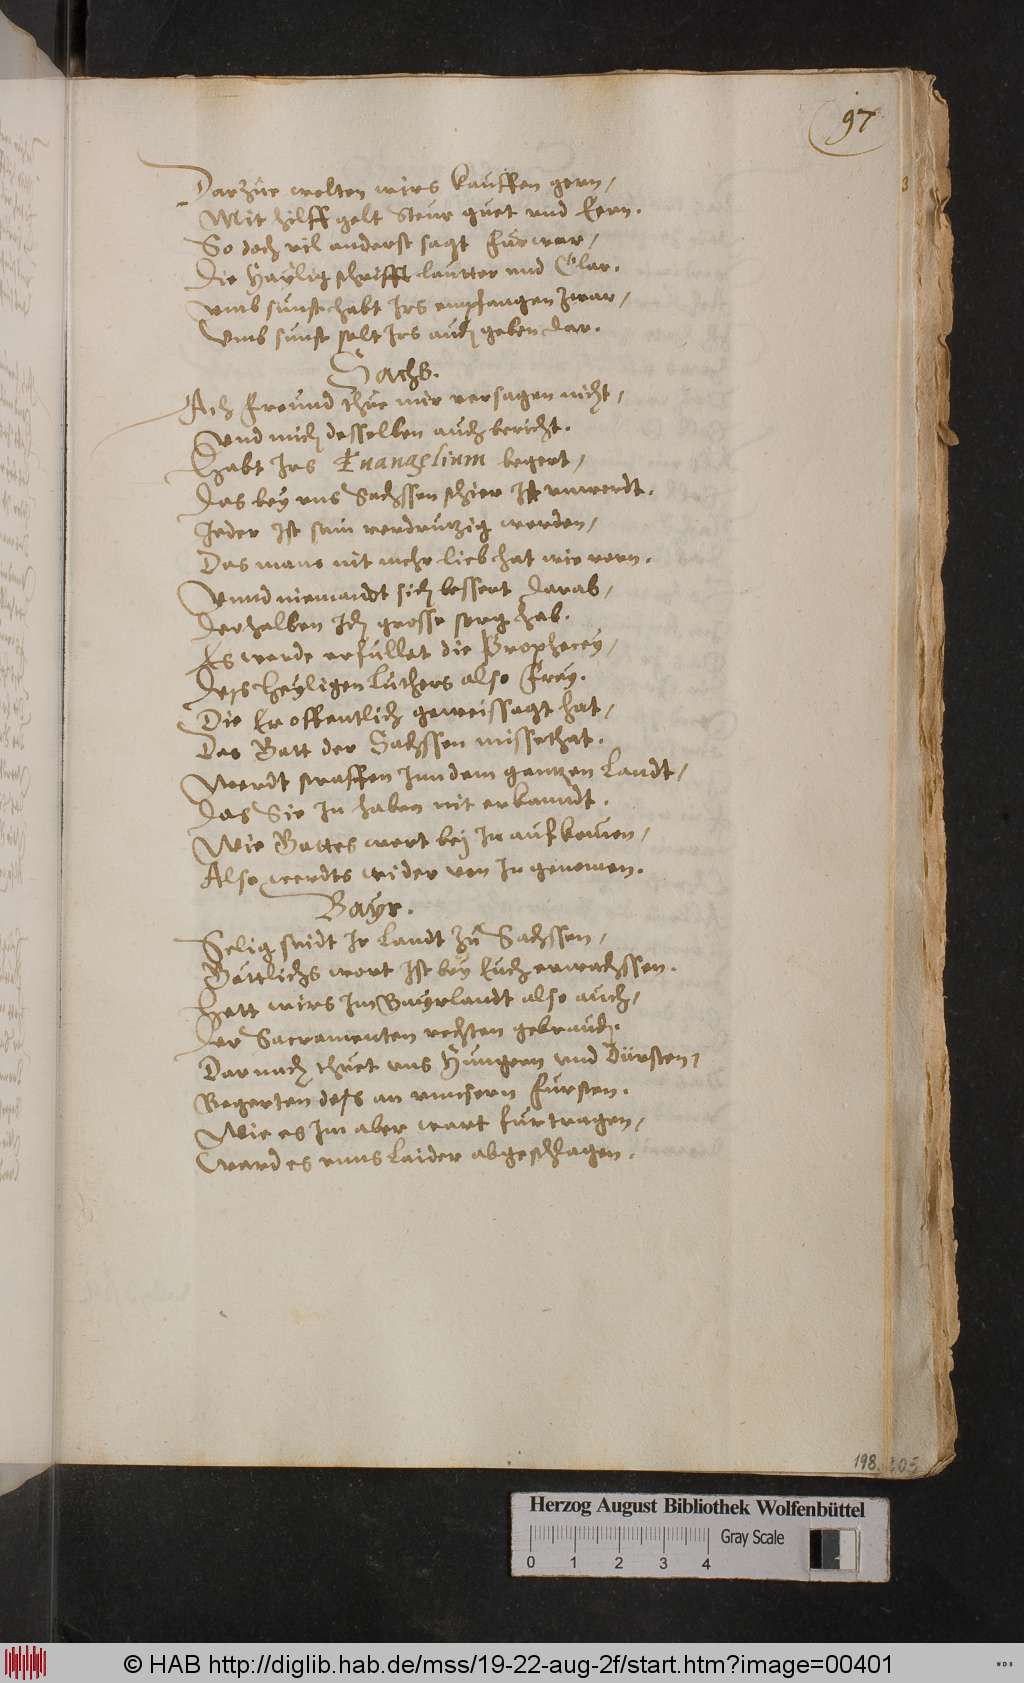 97
3
Darzue wolten wirs kauffen gern /
Mit hilff gelt Steur guet vnd Eern.
So doch vil anderst sagt furwar /
Die Haylig schrifft lautter vnd Clar.
vmb sunst habt Irs empfangen zwar /
Vmb sunst solt Irs auch geben dar.
Sachs.
Ach freundt thue mir versagen nicht /
Vnd mich desselben auch bericht.
Habt Irs Euangelium begert /
Das bey vns Sachssen schier Ist vnwerdt.
Jeder Ist sein verdrutzig worden /
Das mans nit mehr lieb hat wie vorn.
Vnnd niemandt sich bessert darab /
Derhalben Ich grosse sorg hab.
Es werde erfullet die Prophecey /
Dess heyligen Luthers also frey.
Die Er offentlich geweissagt hat /
Das Gott der Sachssen missethat.
Werdt straffen Inn dem gantzen Landt /
Das Sie In haben nit erkanndt.
Wie Gottes wort bej In aufkomen /
Also werdts wider von In genomen.
Bayr.
Selig seidt Ir Landt zu Sachssen /
Göttlichs wort Ist bey Euch erwachssen.
Hett wirs Im Bayrlandt also auch /
Der Sacramenten rechten gebrauch.
Darnach thuet vns Hungern vnd Dürsten /
Begerten dess an vnnsern fursten.
Wie es Im aber wart furtragen /
Ward es vnns laider abgeschlagen.
198.
205
Herzog August Bibliothek Wolfenbüttel
0 1 2 3 4
Gray Scale
© HAB http://diglib.hab.de/mss/19-22-aug-2f/start.htm?image=00401